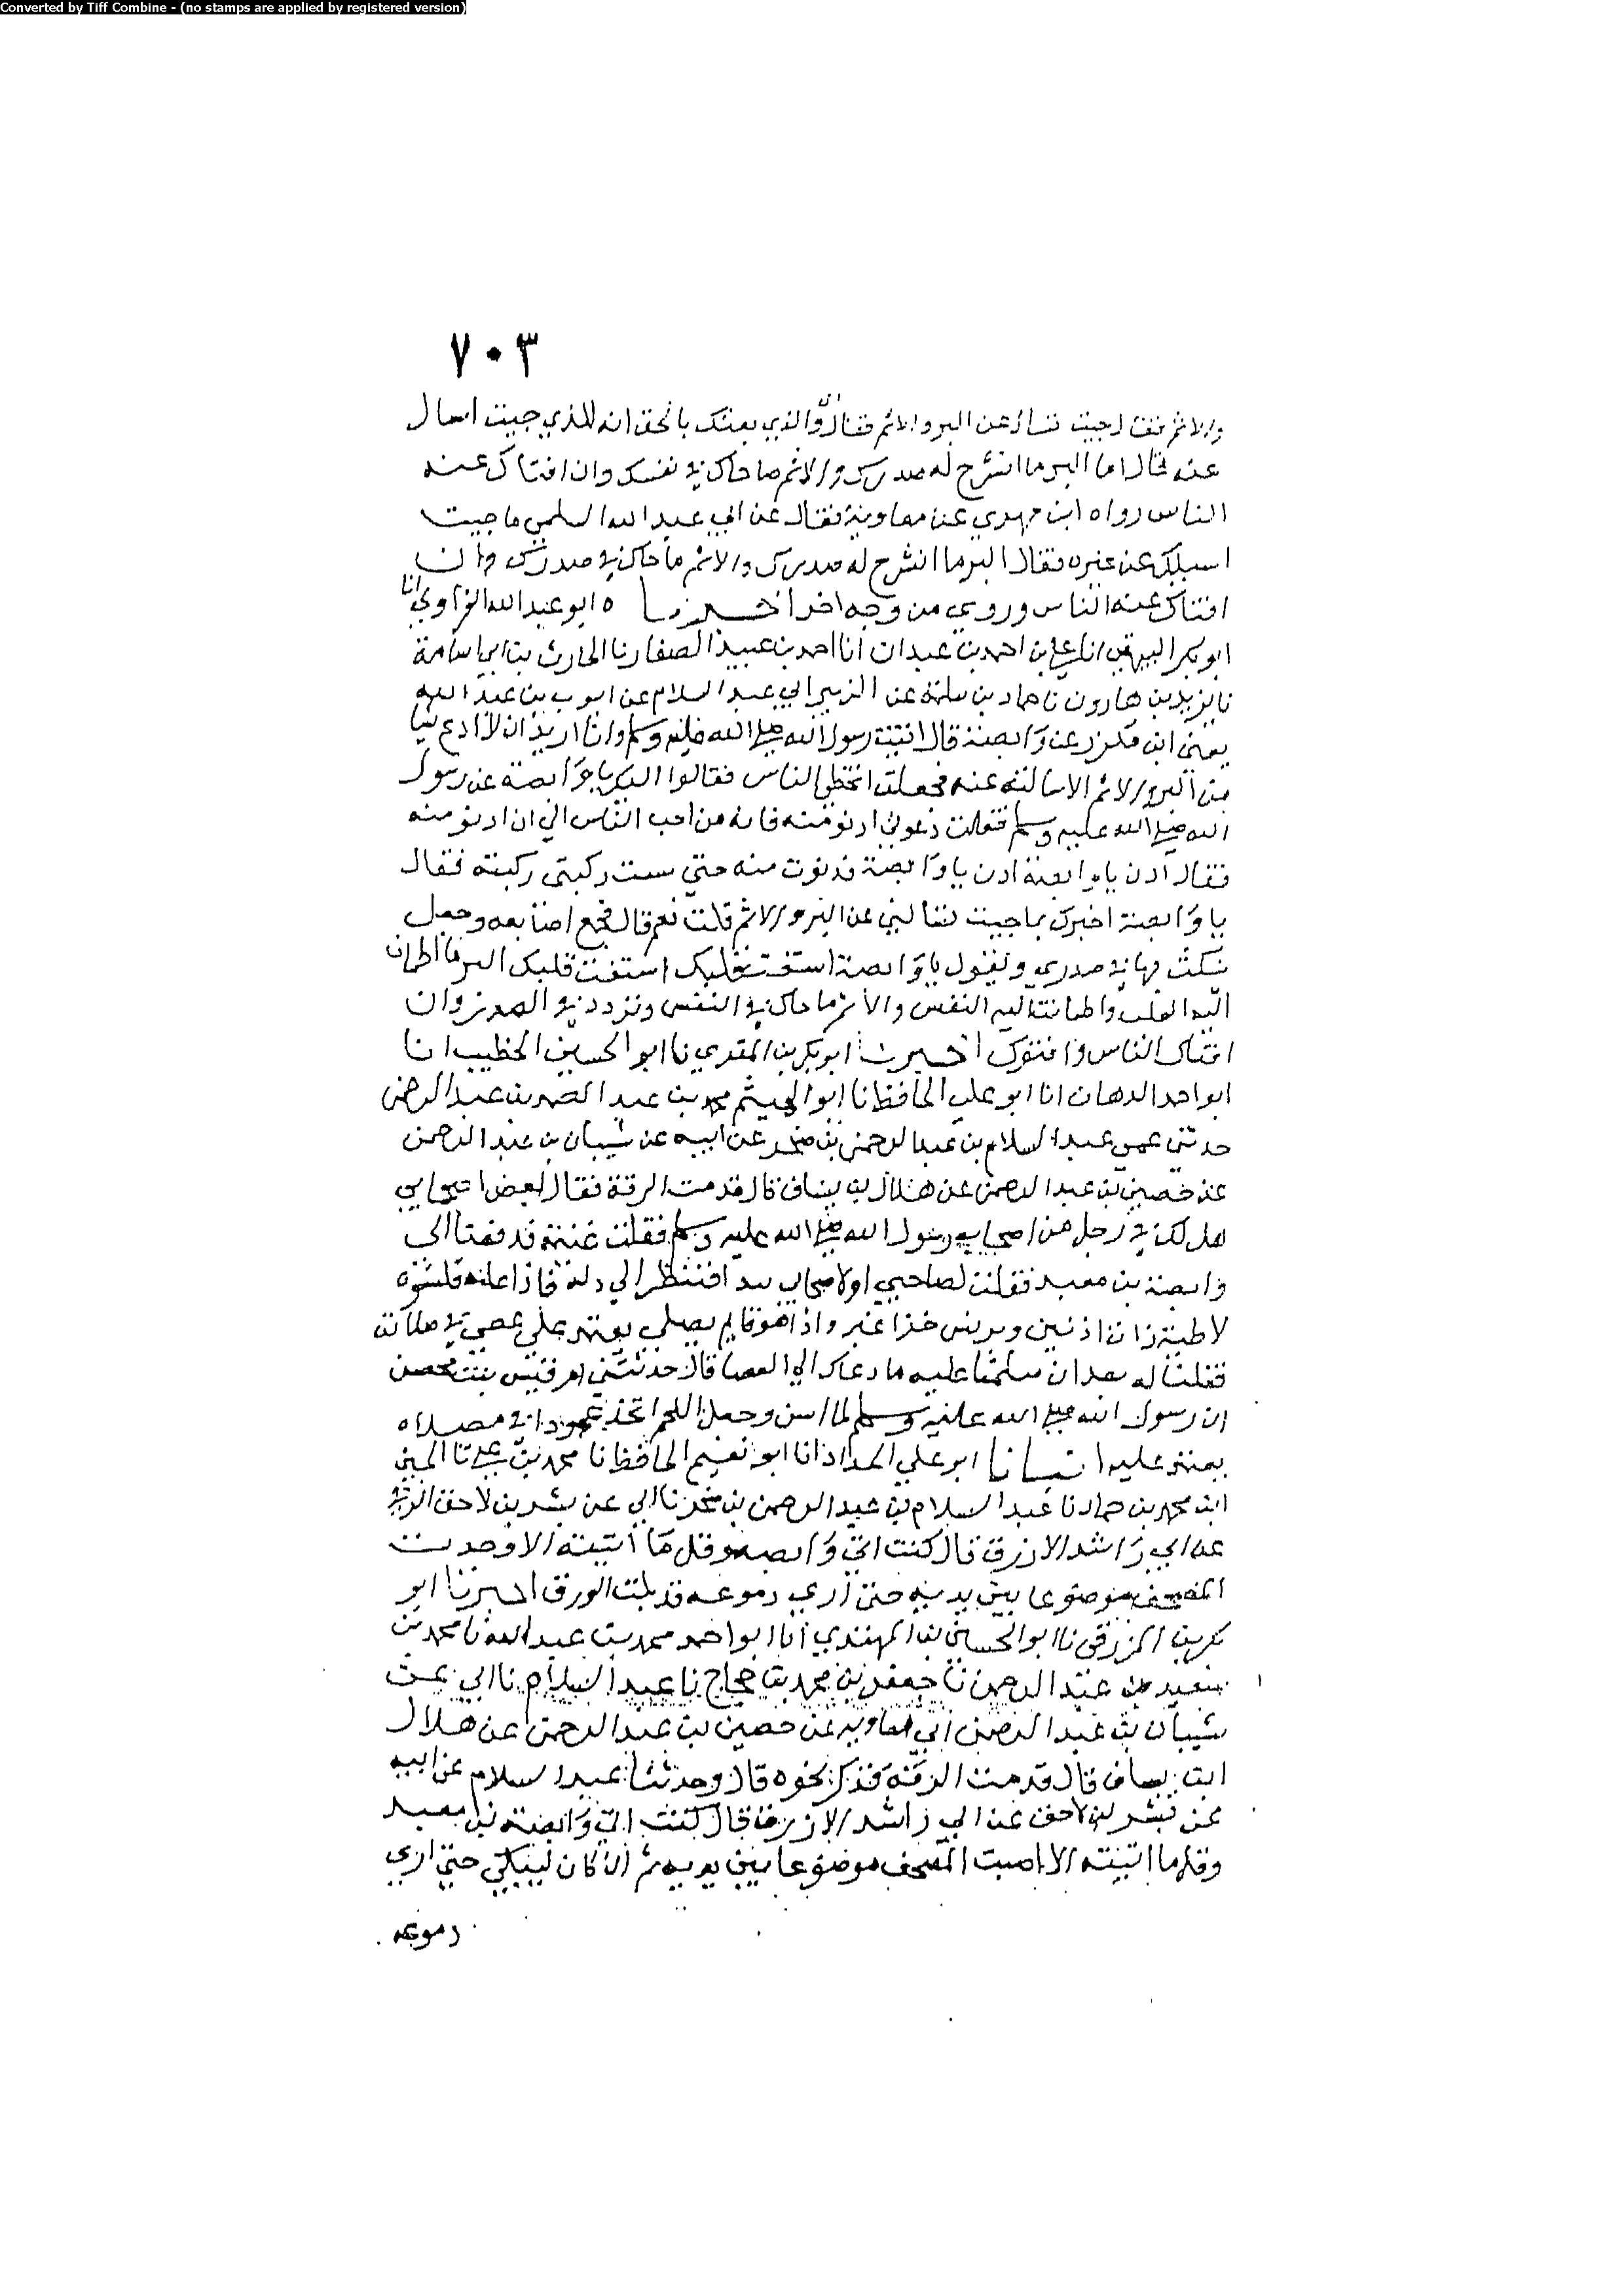 Converted by Tiff Combine - (no stamps are applied by registered version)
٧٠٣
والاثم فقال جيت تسال عن البر والاثم فقال والذي بعثك بالحق انه للذي جيت اسال
عنه فقال اما البر ما انشرح له صدرك والاثم ما حاك في نفسك وان افتاك عنه
الناس رواه ابن مهدي عن معاوية فقال عن ابي عبد الله السلمي ما جيت
اسيلك عن غيره فقال البر ما انشرح له صدرك والاثم ما حاك في صدرك وان
افتاك عنه الناس وروي من وجه اخر اخبرنا ه ابو عبد الله الفراوي انا
ابو بكر البيهقي انا علي بن احمد بن عبدان انا احمد بن عبيد الصفار نا الحارث بن ابي اسامة
نا يزيد بن هارون نا حماد بن سلمة عن الزبير ابي عبد السلام عن ايوب بن عبد الله
يعني ابن مكرز عن وابصة قال اتيت رسول الله صلى الله عليه وسلم وانا اريد ان لا ادع شيا
من البر والاثم الا سالته عنه فجعلت اتخطى الناس فقالوا اليك يا وابصة عن رسول
الله صلى الله عليه وسلم فقلت دعوني ادنو منه فانه من احب الناس الي ان ادنو منه
فقال ادن يا وابصة ادن يا وابصة فدنوت منه حتى مست ركبتي ركبته فقال
يا وابصة اخبرك بما جيت تسالني عن البر والاثم قلت نعم قال فجمع اصابعه وجعل
ينكت بها في صدري ويقول يا وابصة استفت قلبك استفت قلبك البر ما اطمان
اليه القلب واطمانت اليه النفس والاثم ما حاك في النفس وتردد في الصدر وان
افتاك الناس وافتوك اخبرنا ابو بكر بن المقري نا ابو الحسين الخطيب انا
ابو احمد الدهان انا ابو علي الحافظ نا ابو الهيثم محمد بن عبد الصمد بن عبد الرحمن
حدثني عمي عبد السلام بن عبد الرحمن بن صخر عن ابيه عن شيبان بن عبد الرحمن
عن حصين بن عبد الرحمن عن هلال بن يساف قال قدمت الرقة فقال لي بعض اصحابي
هل لك في رجل من اصحاب رسول الله صلى الله عليه وسلم فقلت غنيمة فدفعنا الى
وابصة بن معبد فقلت لصاحبي اولا فننظر الي دله فاذا عليه قلنسوة
لاطية ذات اذنين وبرنس خز اغبر واذا هو قايم يصلي يعتمد على عصى في صلاته
فقلنا له بعد ان سلمنا عليه ما دعاك الى العصا قال حدثتني ام قيس بنت محصن
ان رسول الله صلى الله عليه وسلم لما اسن وحمل اللحم اتخذ عمودا في مصلاه
يعتمد عليه انبانا ابو علي الحداد انا ابو نعيم الحافظ نا محمد بن علي نا الحسين
ابن محمد بن حماد نا عبد السلام بن عبد الرحمن بن صخر نا ابي عن بشر بن لاحق الرقي
عن ابي راشد الازرق قال كنت اتي وابصة وقل ما اتيته الا وجدت
المصحف موضوعا بين يديه حتى اري دموعه قد بلت الورق اخبرنا ابو
بكر بن المزرفي نا ابو الحسين بن المهتدي انا ابو احمد محمد بن عبد الله نا محمد بن
سعيد بن عبد الرحمن نا جعفر بن محمد بن حجاج نا عبد السلام نا ابي عن
شيبان بن عبد الرحمن ابي معاوية عن حصين بن عبد الرحمن عن هلال
ابن يساف قال قدمت الرقة فذكر نحوه قال وحدثنا عبد السلام عن ابيه
عن بشر بن لاحق عن ابي راشد الازرق قال كنت اتي وابصة بن معبد
وقل ما اتيته الا اصبت المصحف موضوعا بين يديه ثم ان كان ليبكي حتى اري
دموعه